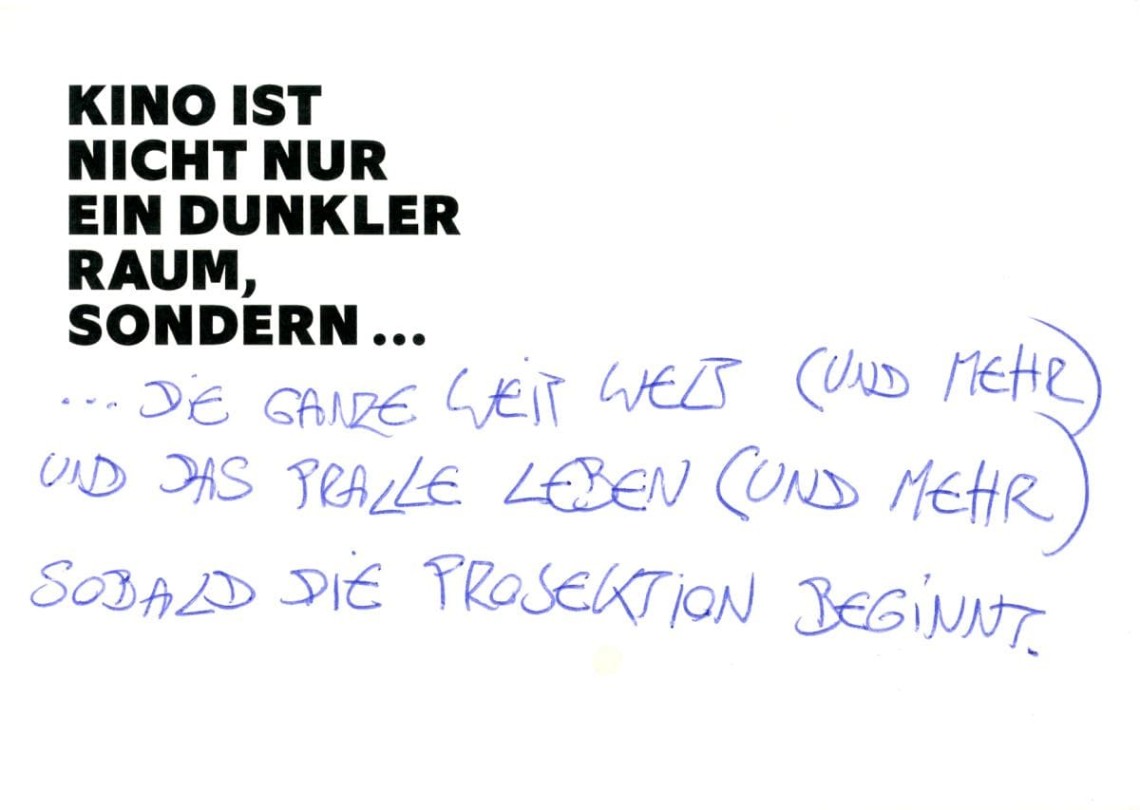 KINO IST
NICHT NUR
EIN DUNKLER
RAUM,
SONDERN ...
... DIE GANZE WEIT WELT (UND MEHR)
UND DAS PRALLE LEBEN (UND MEHR)
SOBALD DIE PROJEKTION BEGINNT.